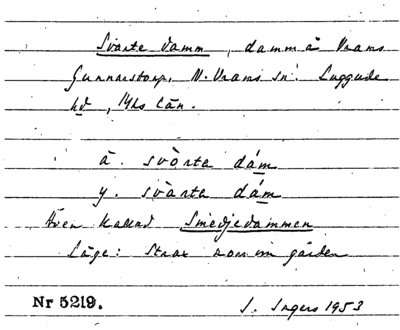 Svarte damm, damm å Vrams
Gunnarstorp, N. Vrams sn. Luggude
hd, Mhs län.
ä. svòrta dám
y. svàrta dám
Även kallad Smedjedammen
Läge: Strax norr om gården
Nr 5219.
I. Ingers 1953